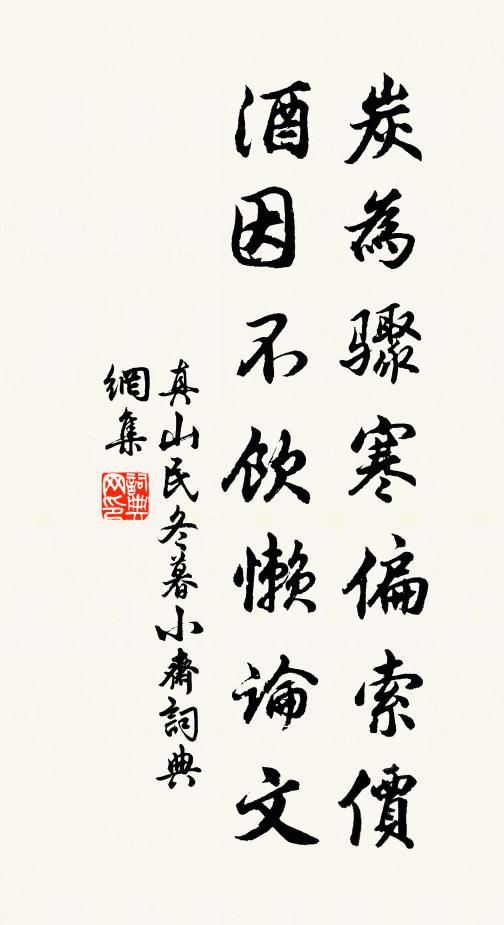 炭為驟寒偏索價
酒因不飲懶論文
真山民冬暮小齋詞典
網集
詞典網印